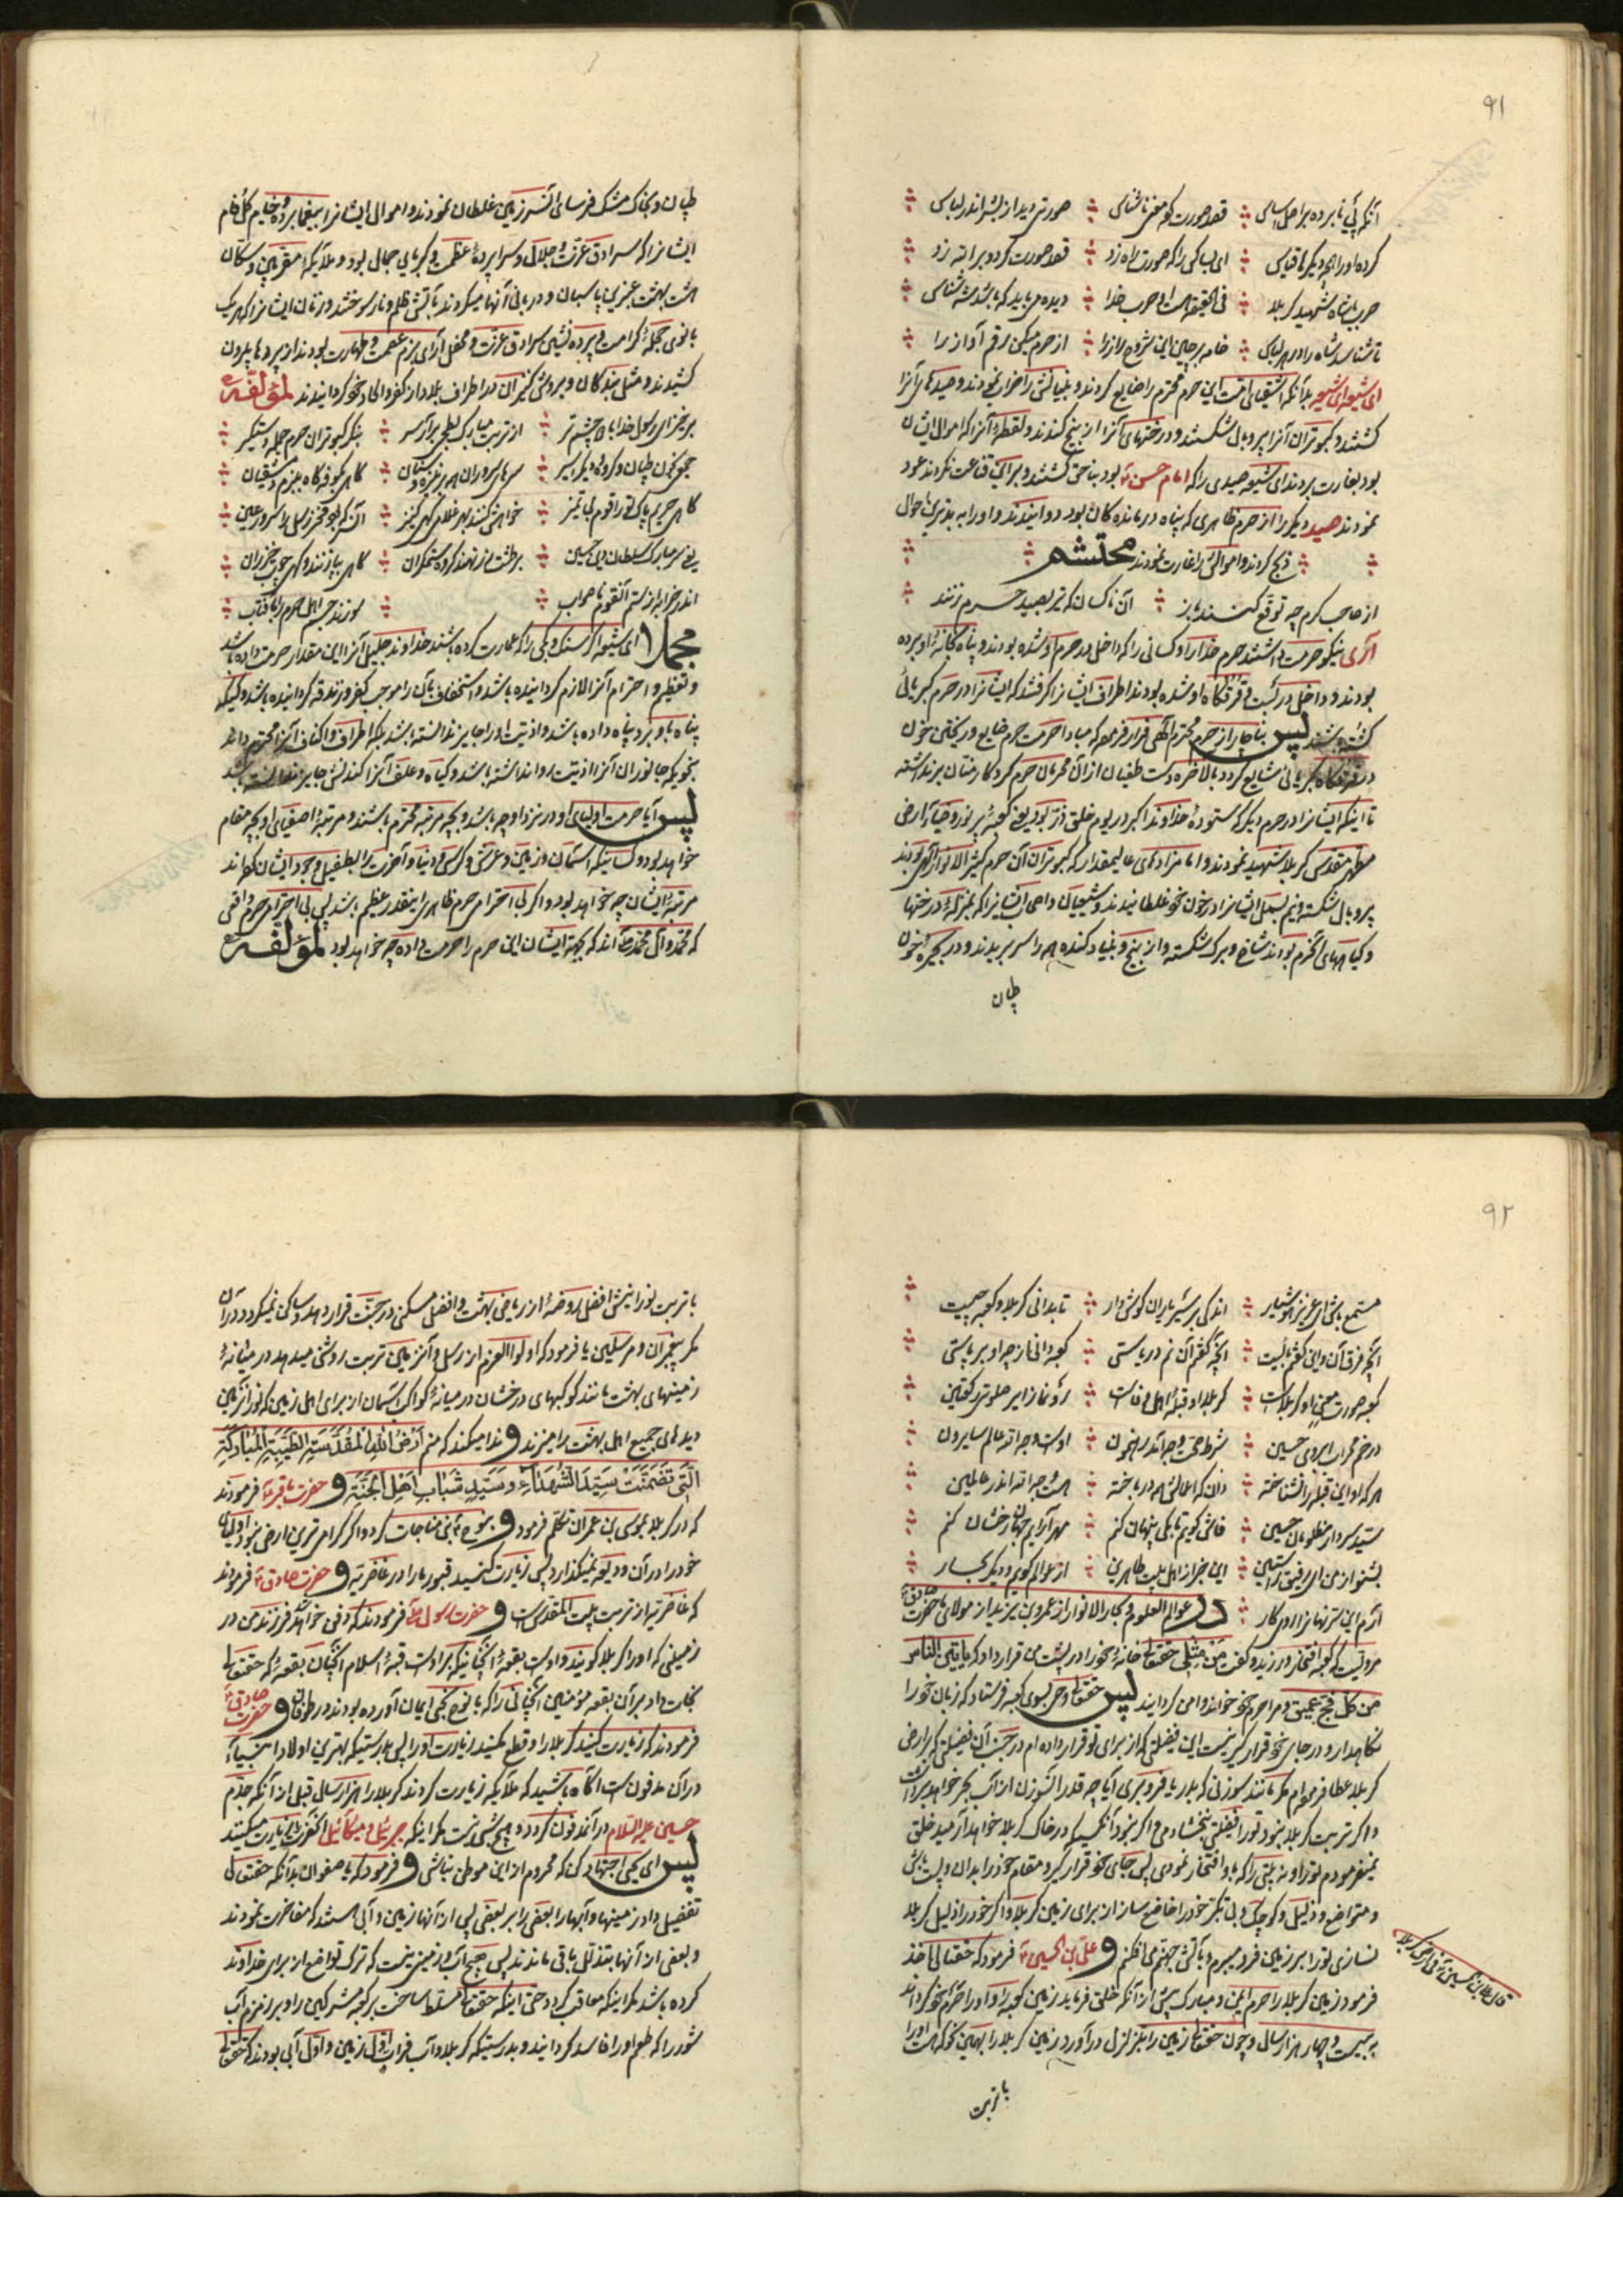 ٩١
کرده او را هم دیگر ها قیاس ای بسا کس را که صورت راه زد قصد صورت کرد و بر الله زد
تا شناسد شاه را در هر لباس
ای شیعه ای شیعه بدانکه اشقیای امت این حرم محترم را ضایع کردند و بنیانش را خراب نمودند و صیدهای آنرا
کشتند و کبوتران آنرا پر و بال شکستند و درختهای آنرا از بیخ کندند و لقطه آنرا که اموال ایشان
بود بغارت بردند ای شیعه صیدی را که امام حسین بود بناحق کشتند و بر این قناعت نکردند
نمودند صید دیگر را از حرم ظاهری که پناه درماندگان بود دوانیدند و او را به بدترین احوال
ذبح کردند و اموالش را غارت نمودند محتشم
از صاحب کرم چه توقع کنند باز آن ناکسان که تیر بصید حرم زنند
آری نیکو حرمت داشتند حرم خدا را و کسانی را که داخل در حرم او شده بودند و پناه بخانه او برده
بودند و داخل در او شده بودند اطراف ایشانرا گرفتند که ایشانرا در حرم کبریائی
کشته باشند پس بناچار از حرم محترم الهی فرار فرمود که مبادا حرمت حرم ضایع و ریختن خون
در کبریائی شایع گردد بالاخره دست طغیان از آن محرمان حرم کردگار منان برنداشته
تا اینکه ایشانرا در حرم دیگر که ستوده خداوند اکبر در یوم خلق ذر بود یعنی کعبه پر نور و ضیا ارض
مطهر مقدس کربلا شهید نمودند و امامزاده های عالیمقدار که کبوتران آن حرم کثیر الانوار الهی بودند
پر و بال شکسته و نیم بسمل ایشانرا در خون خود غلطانیدند و شیعیان و اصحاب ایشانرا که بمنزله درختها
و گیاههای آنحرم بودند شاخ و برگ شکسته و از بیخ و بنیاد کنده همه را سر بریدند و در بحیره خون
طپان
طپان و بخاک مشک فرسای آنسرزمین غلطان نمودند و اموال ایشانرا بیغما برده و خیام
ایشانرا که سرادق عزت و جلال و سراپرده عظمت و کبریایی جمال بود و ملایکه مقربین و سکان
هشت بهشت عنبرین پاسبان و دربانی آنها میکردند بآتش ظلم و نار سوختند و زنان ایشانرا که هر یک
بانوی حجله کرامت و پرده نشین سرادق عزت و محفل آرای بزم عصمت و طهارت بودند از پرده ها بیرون
کشیدند و مثل بندگان و بروش کنیزان در اطراف بلاد از کفر و الحاد خود گردانیدند لمؤلفه
برخیز ای رسول خدا با دو چشم تر از تربت مبارک بطحی برآر سر بنگر کبوتران حرم جمله دستگیر
جمعی بخون طپان و گروه دیگر اسیر سرهای سروران همه بر نیزه سنان گاهی بکوفه گاه ببزم دمشقیان
گاهی حریم پاک تو را قوم بی تمیز خواهش کنند بهر غلامی گهی کنیز
یعنی سر مبارک سلطان دین حسین بر طشت زر نهند گروه ستمگران گاهی بپا زنند و گهی چوب خیزران
اندر خرابه از ستم آنقوم ناصواب سوزند جسم اهل حرم را بآفتاب
مجملا ای شیعه اگر سنگ و گل را که عمارت کرده باشند خداوند جلیل آنرا این مقدار حرمت داده باشد
و تعظیم و احترام آنرا لازم گردانیده باشد و استخفاف بآن را موجب کفر و زندقه گردانیده باشد و کسیکه
پناه باو برد پناه داده باشد و اذیت او را جایز ندانسته باشد بلکه اطراف و اکناف آنرا محترم داند
بنحویکه جانوران آنرا اذیت روا نداشته باشد و گیاه و علف آنرا کندنش جایز ندانسته باشد
پس آیا حرمت اولیای او در نزد او چه باشد و بچه مرتبه محترم باشند و مرتبه اصفیای او بچه مقام
خواهد بود و کسانیکه آسمان و زمین و عرش و کرسی و دنیا و آخرت را بطفیل وجود ایشان
مرتبه ایشان چه خواهد بود و اگر بی احترامی حرم ظاهری اینقدر عظیم باشد پس بی احترامی حرم واقعی
که محمد و آل محمد اند که بجهة ایشان این حرم را حرمت داده چه خواهد بود لمؤلفه
٩٢
مستمع باش ای عزیز هوشیار اندکی بر سر یاران گوش دار تا بدانی کربلا و کعبه چیست
کعبه صورت معنی او کربلاست کربلا و قبله اهل وفاست
در خم محراب ابروی حسین
هر که او این قبله را نشناخته دان که اعمالش همه در باخته هست وجه الله اندر عالمین
سید سردار مظلومان حسین فاش گویم تا بکی پنهان کنم
بشنو از من ای رفیق راستین این خبر از اهل بیت طاهرین از عوالم گویم و دیگر بحار
آرم این سر نهان را آشکار در عوالم العلوم و بحار الانوار از عمرو بن یزید از مولای حضرت صادق
مرویست که کعبه افتخار ورزید و گفت من مثلی حقتعالی خانه خود را در پشت من قرار داد که یأتینی الناس
من کل فج عمیق و مرا حرم خود خواند و امن گردانید پس حقتعالی وحی بسوی کعبه فرستاد که زبان خود را
نگاهدار و در جای خود قرار گیر نیست این فضیلتی که از برای تو قرار داده ام در جنب آن فضیلتی که بارض
کربلا عطا فرموده ام مگر مانند سوزنی که بدریا فرو بری آیا چه قدر آنسوزن از آب بحر خواهد برداشت
و اگر تربت کربلا نبود تو را فضیلتی نبخشادمی و اگر نبود آنکسیکه در خاک کربلا خواهد آرمید خلق
نمیفرمودم تو را و نه بیتی را که باو افتخار نمودی پس جای خود قرار گیر و مقام خود را بدان و پست باش
و متواضع و ذلیل و کوچک و بی تکبر خود را خاضع ساز از برای زمین کربلا و اگر خود را ذلیل کربلا
نسازی تو را بر زمین فرو میبرم و بآتش جهنم می افکنم و علی بن الحسین فرمود که حقتعالی اخذ
فرمود زمین کربلا را حرم ایمن و مبارک پیش از آنکه خلق فرماید زمین کعبه را و او را حرم خود گرداند
به بیست و چهار هزار سال و چون حقتعالی زمین را بتزلزل در آورد زمین کربلا را بهمین نحو که هست او را
با تربت
قال علی بن الحسین فی ارض کربلا
با تربت نورانیش افضل روضه از ریاض بهشت و افضل مسکن در جنت قرار دهد و ساکن نمیگردد در آن
مگر پیغمبران و مرسلین یا فرمود که اولوا العزم از رسل و آنزمین تربت روشنی میدهد در میانه
زمینهای بهشت مانند کوکبهای درخشان در میانه کواکب آسمان از برای اهل زمین که نور آنزمین
دیده های جمیع اهل بهشت را میبرد و ندا میکند که منم أرض الله المقدسة الطیبة المبارکة
التی تضمنت سید الشهداء و سید شباب اهل الجنة و حضرت باقر فرمودند
که در کربلا بموسی بن عمران تکلم فرمود و بنوح نبی مناجات کرد و اگر گرامی ترین ارض نبود اولیای
خود را در آن ودیعه نمیگذارد پس زیارت کنید قبور ما را در غاضریه و حضرت صادق فرمودند
که غاضریه از تربت بیت المقدس است و حضرت رسول فرمودند که دفن خواهد شد فرزند من در
زمینی که او را کربلا گویند و اوست بقعه آنچنانیکه بر اوست قبه اسلام آنچنان بقعه که حقتعالی
نجات داد بر آن بقعه مؤمنین آنچنانی را که با نوح نبی ایمان آورده بودند در طوفان و حضرت صادق
فرمودند که زیارت کنید کربلا را و قطع مکنید زیارت او را پس بدرستیکه بهترین اولاد انبیا
در آن مدفون است آگاه باشید که ملایکه زیارت کردند کربلا را هزار سال قبل از آنکه جدم
حسین علیه السلام در آن مدفون گردد و هیچ شبی نیست مگر اینکه جبرئیل و میکائیل آنحضرت را زیارت میکنند
پس ای یحیی اجتهاد کن که محروم از این موطن نباشی و فرمود که یا صفوان بدانکه حقتعالی
تفضیل داد زمینها و آبها را بعضی را بر بعضی پس از آنها زمین و آبی هستند که مفاخرت نمودند
و بعضی از آنها بتذلل باقی ماندند پس هیچ آب و زمینی نیست که ترک تواضع از برای خداوند
کرده باشد مگر اینکه معاقب گردد حتی اینکه حقتعالی مسلط ساخت بر کعبه مشرکین را و بر زمزم آب
شور را که طعم او را فاسد گردانید و بدرستیکه کربلا و آب فرات اول زمین و اول آبی بودند که حقتعالی